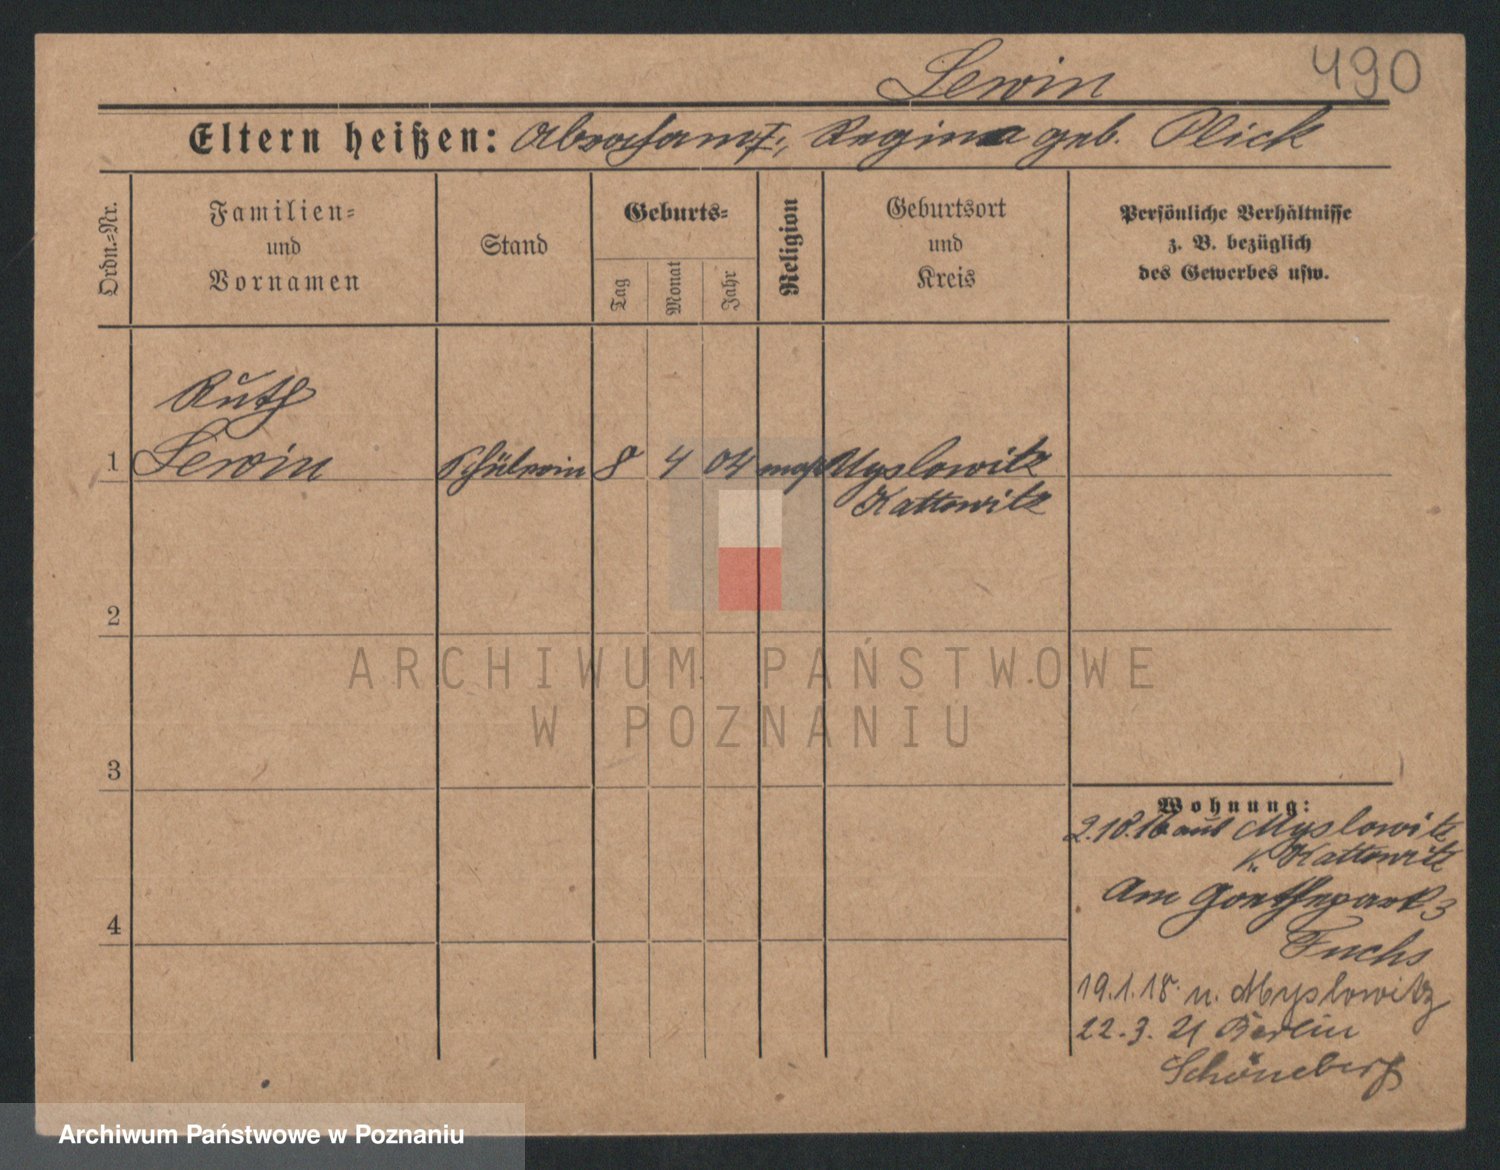 Lewin 490
Eltern heißen: Abraham †, Regina geb. Plick
Ordn.-Nr.
Familien-
und
Vornamen
Stand
Geburts-
Tag
Monat
Jahr
Religion
Geburtsort
und
Kreis
Persönliche Verhältnisse
z. B. bezüglich
des Gewerbes usw.
Ruth
1 Lewin Schülerin 8 4 04 mos Myslowitz
Kattowitz
2
ARCHIWUM PAŃSTWOWE
W POZNANIU
3
Wohnung:
2.10.16 aus Myslowitz
K. Kattowitz
Am Goethepark 3
4
Fuchs
19.1.18. n. Myslowitz
22.3.21 Berlin
Schöneberg
Archiwum Państwowe w Poznaniu